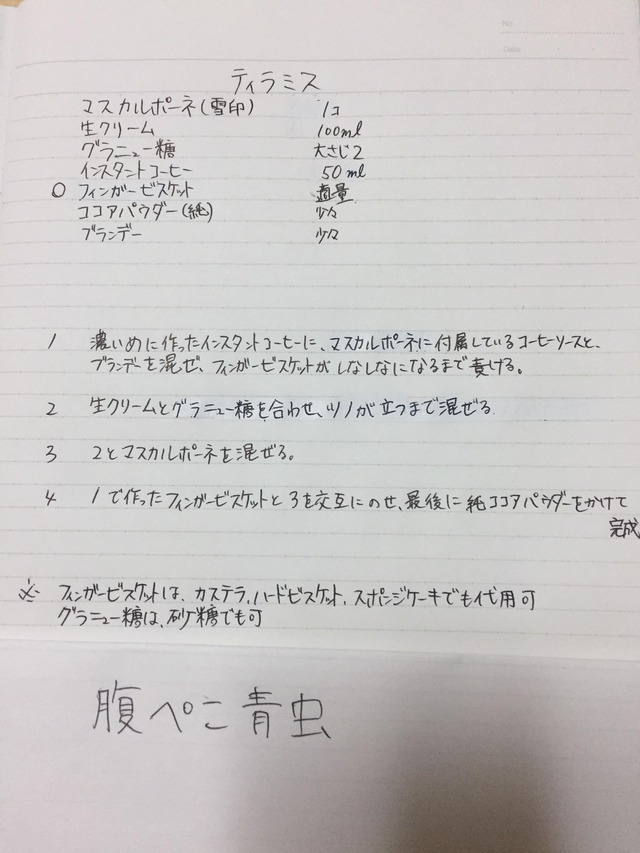 No.
Date
ティラミス
マスカルポーネ(雪印) 1コ
生クリーム 100ml
グラニュー糖 大さじ2
インスタントコーヒー 50ml
○ フィンガービスケット 適量
ココアパウダー(純) 少々
ブランデー 少々
1 濃いめに作ったインスタントコーヒーに、マスカルポーネに付属しているコーヒーソースと、
ブランデーを混ぜ、フィンガービスケットがしなしなになるまで漬ける。
2 生クリームとグラニュー糖を合わせ、ツノが立つまで混ぜる
3 2とマスカルポーネを混ぜる。
4 1で作ったフィンガービスケットと3を交互にのせ、最後に純ココアパウダーをかけて
完成
※ フィンガービスケットは、カステラ、ハードビスケット、スポンジケーキでも代用可
グラニュー糖は、砂糖でも可
腹ぺこ青虫